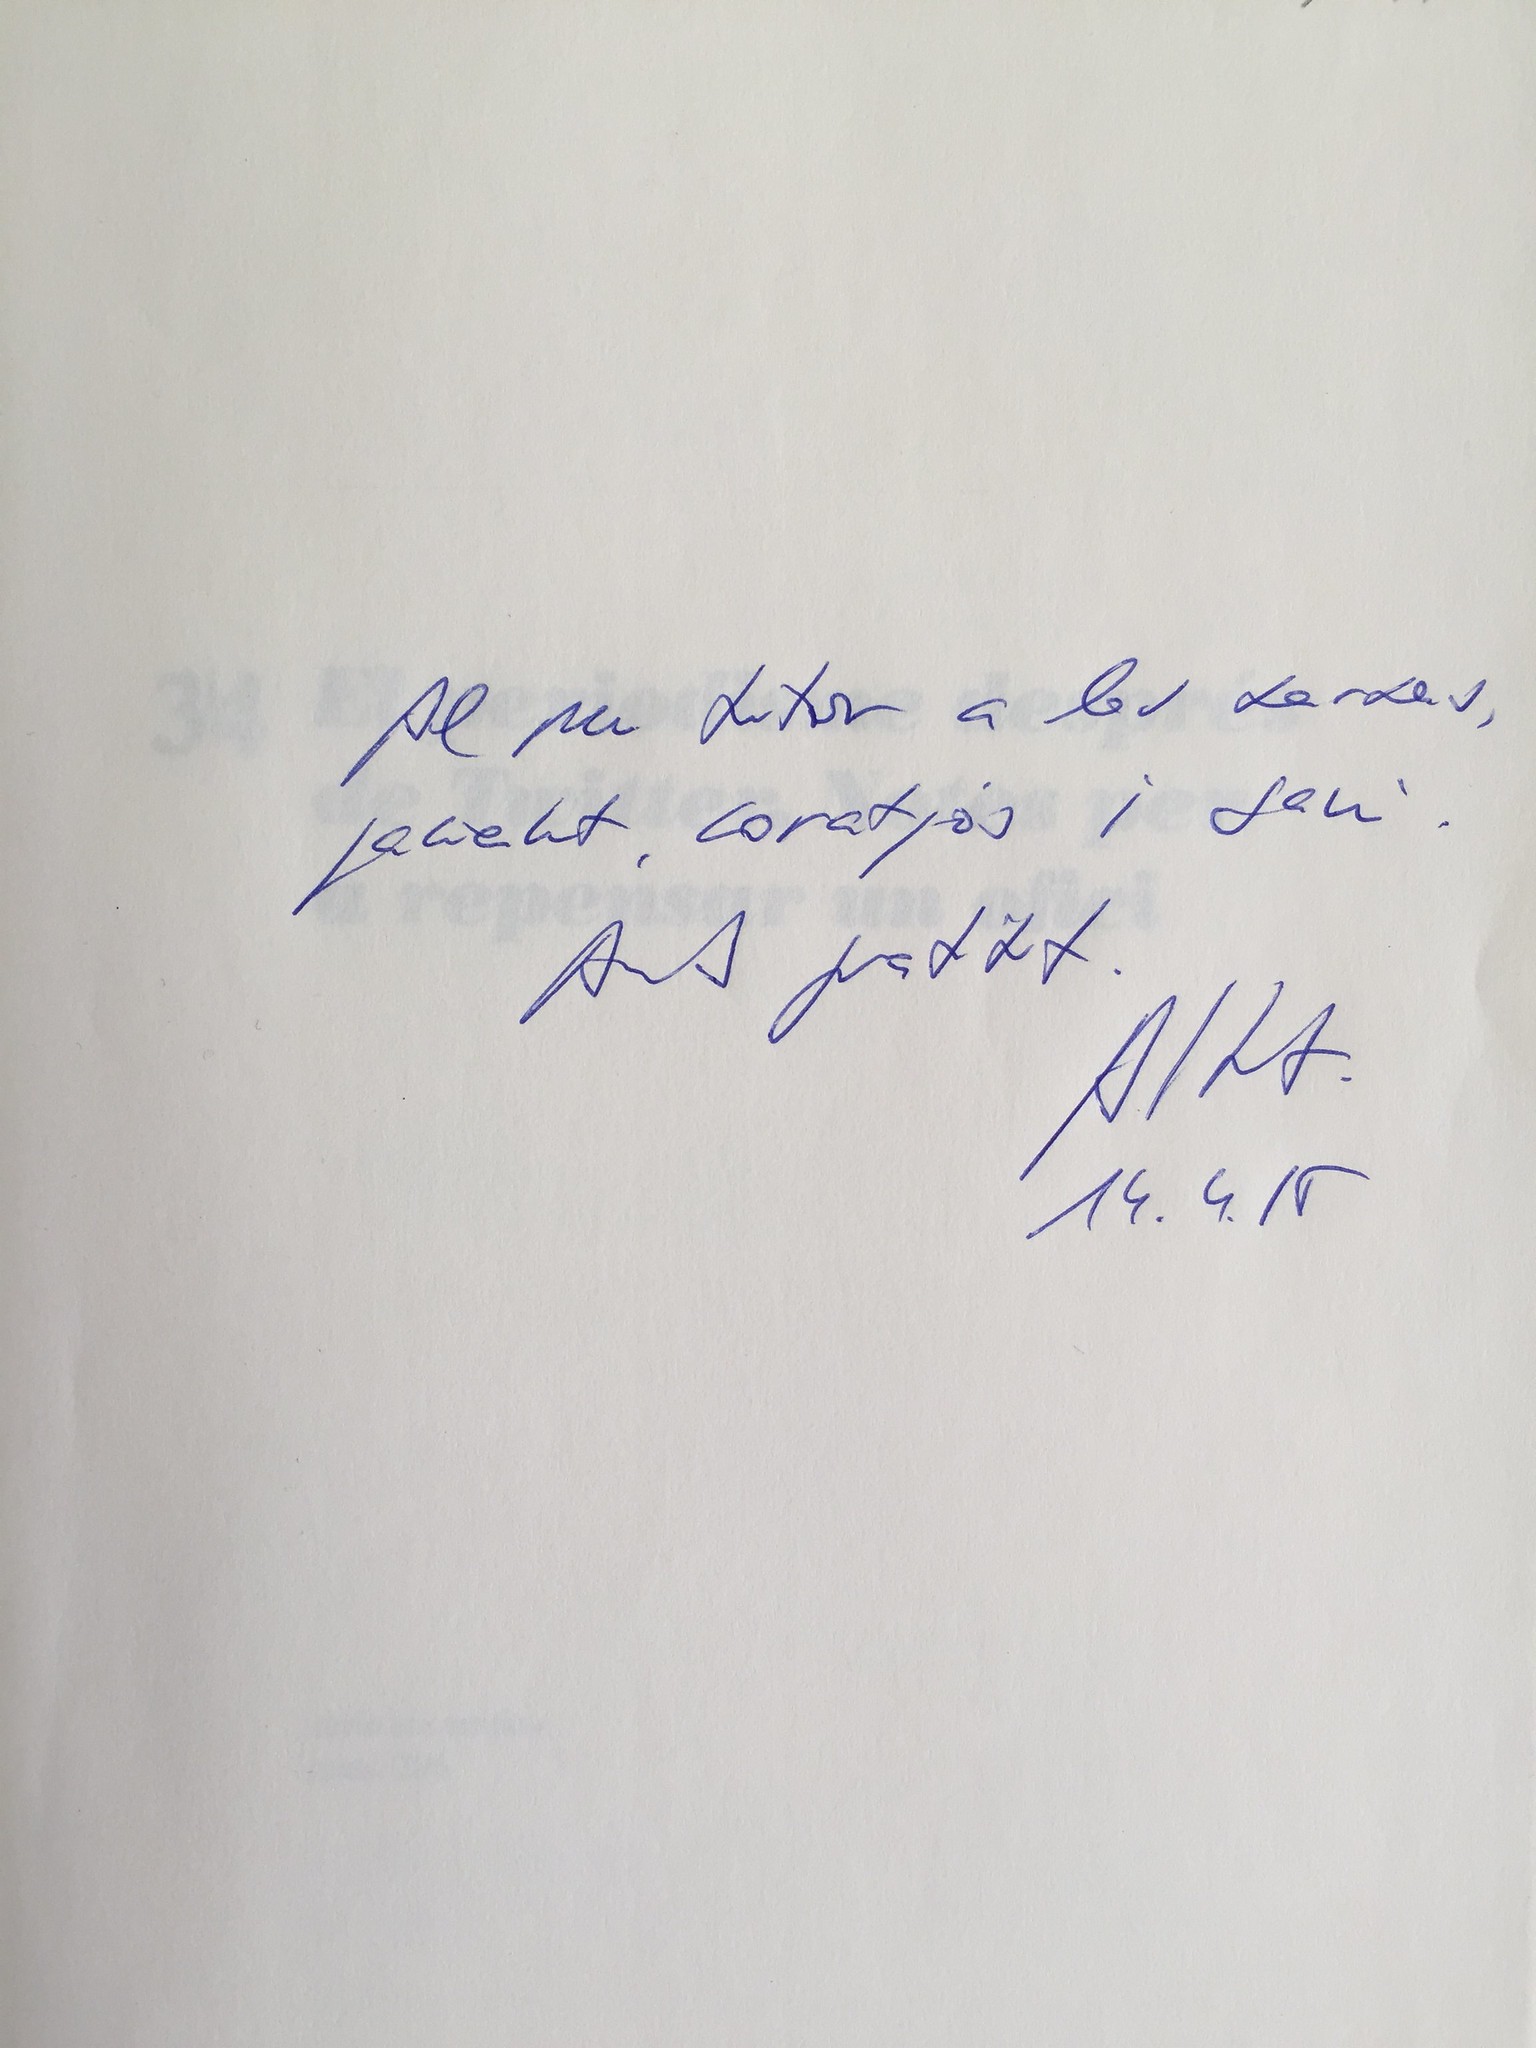 Al meu tutor a les xarxes,
pacient, coratjós i savi.
Amb gratitut.
14.4.15
34 El periodisme després
de Twitter. Notes per
a repensar un ofici